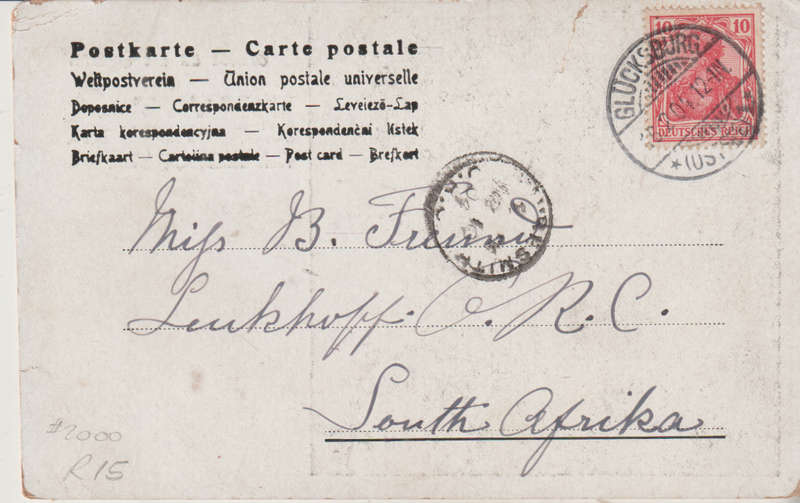 Postkarte — Carte postale
Weltpostverein — Union postale universelle
Dopesnice — Correspondenzkarte — Levelező-Lap
Karta korespondencyjna — Korespondenčni listek
Briefkaart — Cartolina postale — Post card — Brefkort
10 10
DEUTSCHES REICH
GLÜCKSBURG
12-1N.
*(OST
O.R.C.
Miss B.
Luckhoff. O. R. C.
South Afrika
#2000
R15